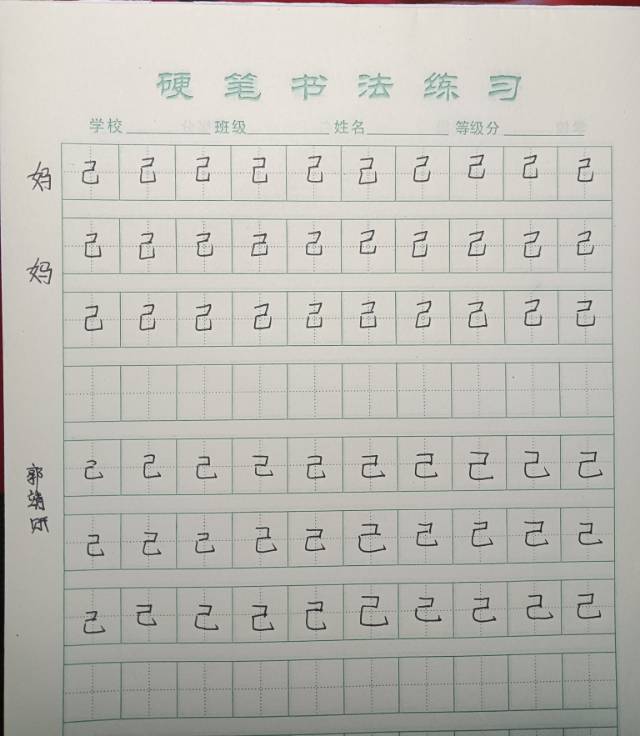 硬笔书法练习
学校 班级 姓名 等级分
妈 己己己己己己己己己己
妈 己己己己己己己己己己
己己己己己己己己己己
郭 己己己己己己己己己己
己己己己己己己己己己
己己己己己己己己己己